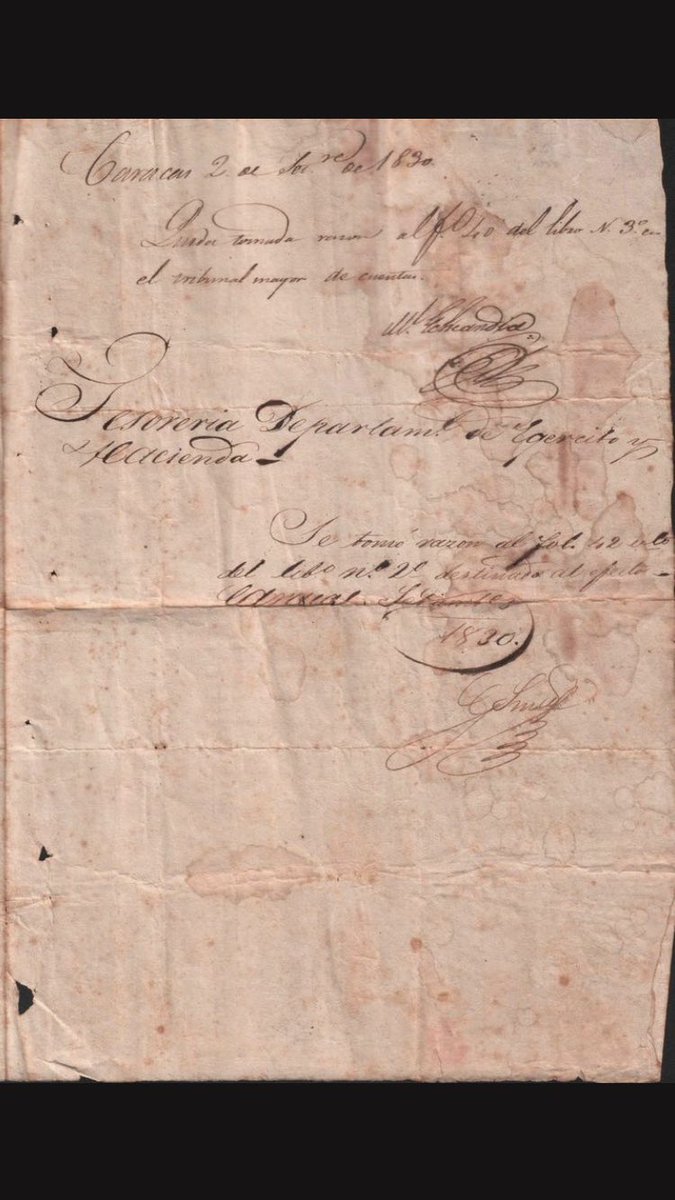 Caracas 2 de 7bre de 1830
Queda tomada razon al fº 40 del libro N. 3º en
el tribunal mayor de cuentas.
M. Echeandia
Tesoreria Departamᶩ. de Egercito y
Hacienda
Se tomó razon al fol. 42
del libº nº 2º destinado al efecto
Caracas Setiembre
1830.